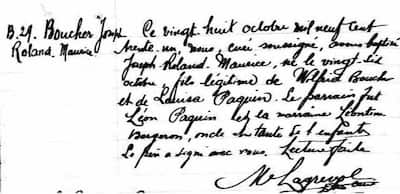 B.29. Boucher Joseph
Roland Maurice
Ce vingt huit octobre mil neuf cent
trente-un, nous, curé soussigné, avons baptisé
Joseph Roland Maurice, né le vingt-six
octobre, fils légitime de Wilfrid Boucher
et de Louisa Paquin. Le parrain fut
Léon Paquin et la marraine Léontine
Bergeron, oncle et tante de l'enfant.
Le père a signé avec nous. Lecture faite